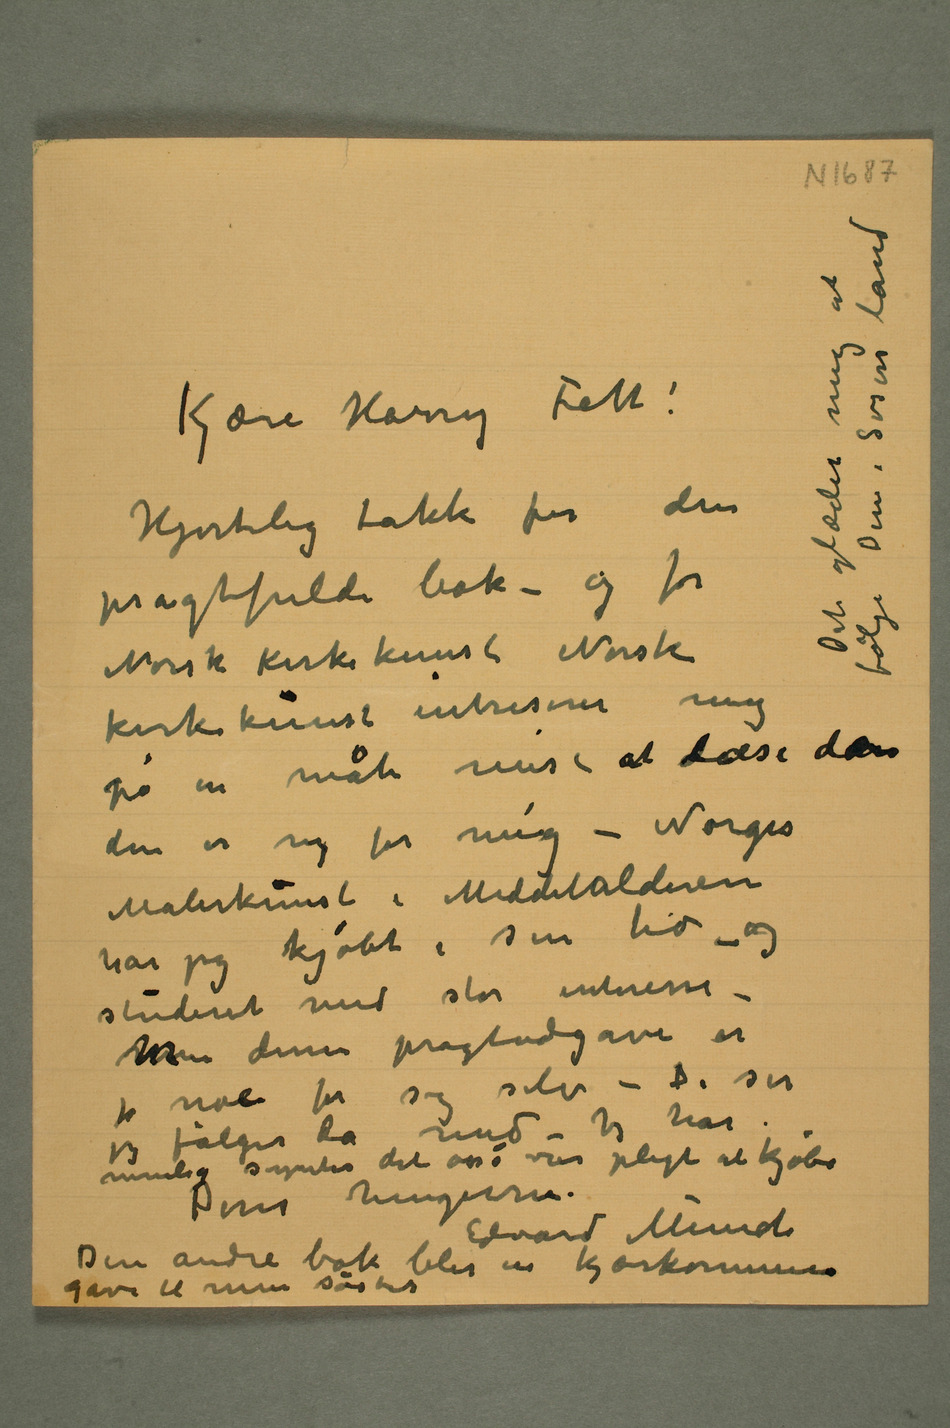 N 1687
Kjære Harry Fett!
Hjertelig takk for den
pragtfulde bok – og for
Norsk Kirkekunst Norsk
kirkekunst intreserer mig
på en måte mest at læse den
den er ny for mig – Norges
Malerkunst i Middelalderen
har jeg kjøbt i sin tid – og
studeret med stor interesse –
Men denne pragtudgave er
jo noe for sig selv – De ser
jeg følger da med – Jeg har
nemlig syntes det også var pligt at kjøbe
Deres hengivne.
Edvard Munch
Den andre bok blir en kjærkommen
gave til min søster
Det glæder mig at
følge Dem i Sosens land